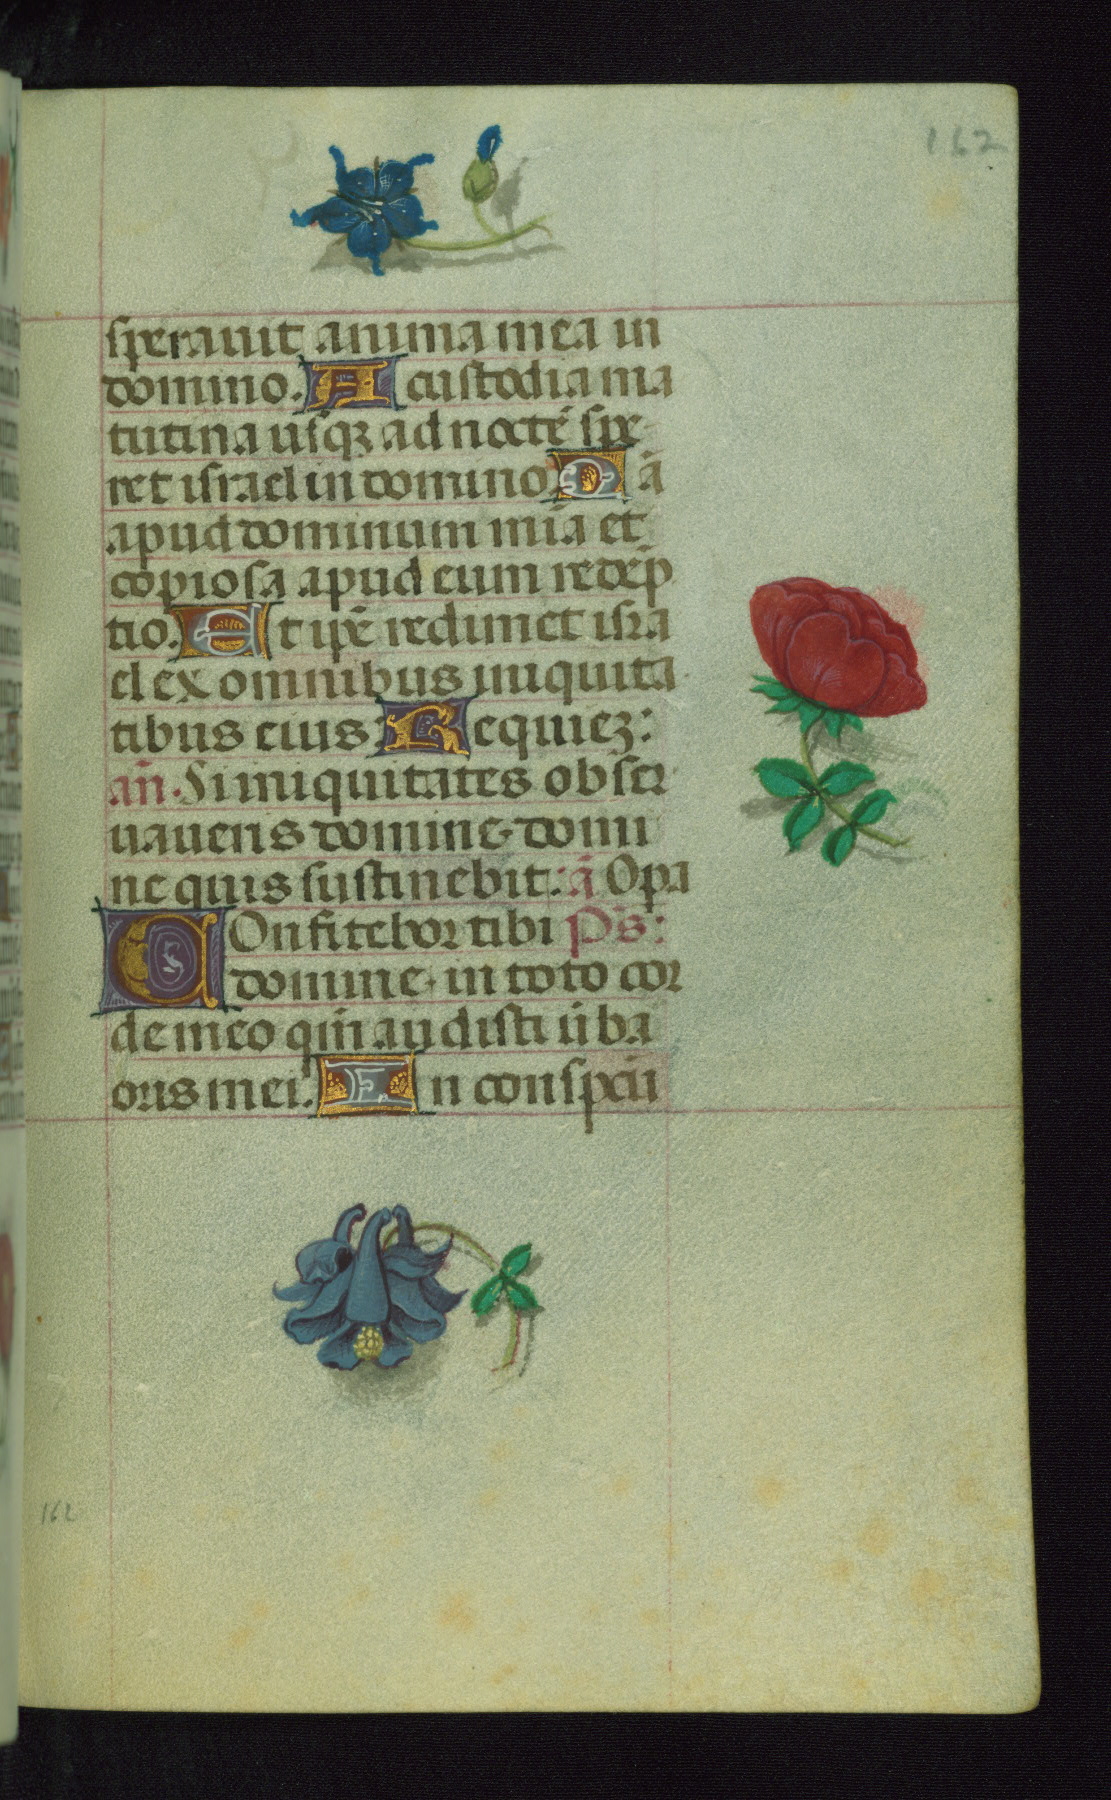 162
sperauit anima mea in
domino. A custodia ma
tutina usq₃ ad noctē spe
ret israel in domino. Q ā
apud dominum mīa et
copiosa apud eum redēp
tio. Et ip̄e redimet isra
el ex omnibus iniquita
tibus eius. Requiez:
an̄. Si iniquitates obser
uaueris domine domi
ne quis sustinebit: ā Opa
COnfitebor tibi Ps̄:
domine in toto cor
de meo qm̄ audisti ūba
oris mei. In conspcū
162